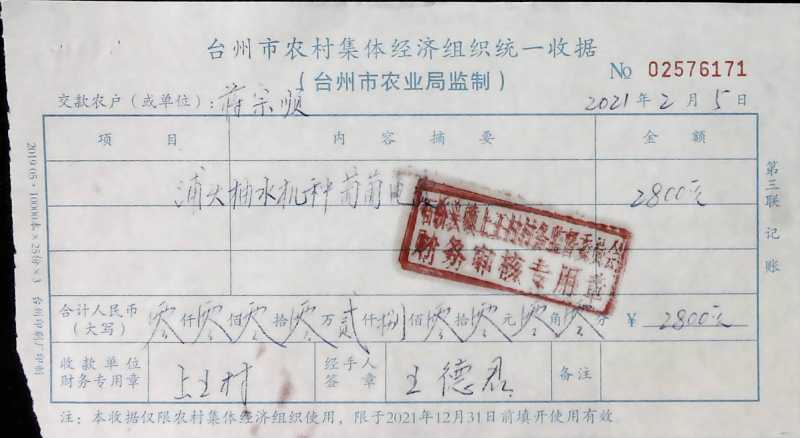 台州市农村集体经济组织统一收据
(台州市农业局监制)
No 02576171
交款农户(或单位):蒋宗顺 2021年2月5日
项目 内容摘要 金额
浦头抽水机种葡萄电 2800元
财务审核专用章
合计人民币(大写) 零仟零佰零拾零万贰仟捌佰零拾零元零角零分 ¥ 2800元
收款单位财务专用章 上王村 经手人签章 王德君 备注
注:本收据仅限农村集体经济组织使用,限于2021年12月31日前填开使用有效
第三联 记账
2019.05·10000本×25份×3